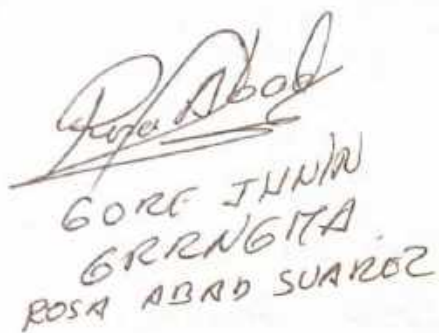 Rosa Abad
GORE JUNIN
GRRNGMA
ROSA ABAD SUAREZ